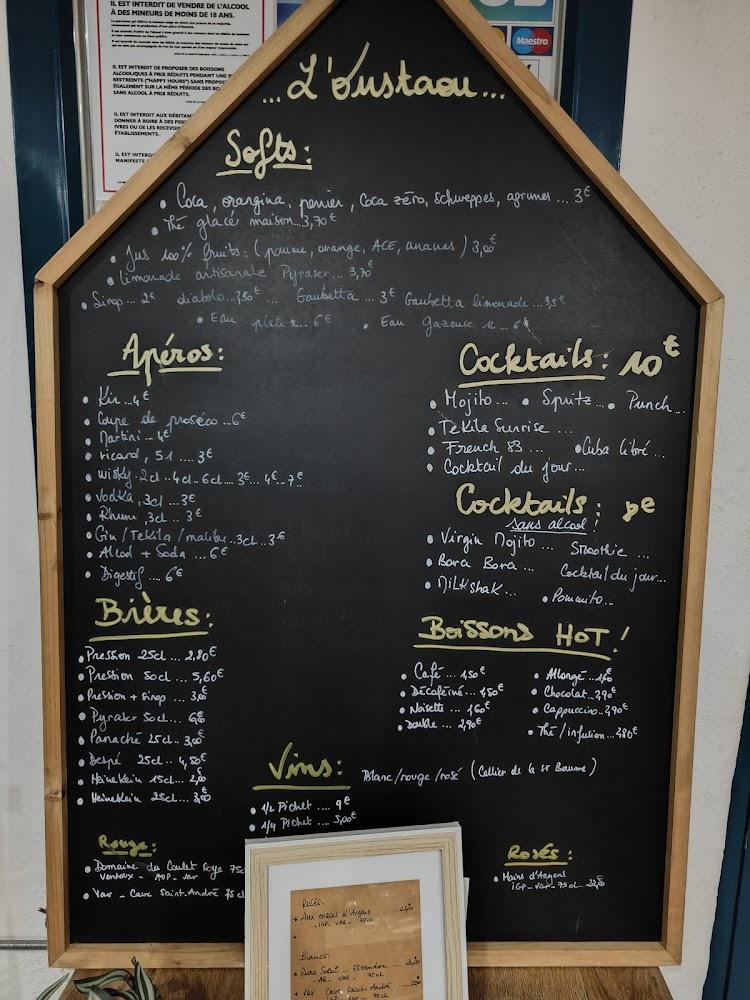 IL EST INTERDIT DE VENDRE DE L'ALCOOL
À DES MINEURS DE MOINS DE 18 ANS.
IL EST INTERDIT DE PROPOSER DES BOISSONS
ALCOOLIQUES À PRIX RÉDUITS PENDANT UNE
RESTREINTE ("HAPPY HOURS") SANS PROPOS
ÉGALEMENT SUR LA MÊME PÉRIODE DES BO
SANS ALCOOL À PRIX RÉDUITS.
IL EST INTERDIT AUX DÉBITAN
DONNER À BOIRE À DES PER
IVRES OU DE LES RECEVOI
ÉTABLISSEMENTS.
IL EST INTERD
MANIFESTE
Maestro
...L'oustaou...
Softs:
• Coca, orangina, perrier, Coca zéro, schweppes, agrumes ... 3€
• Thé glacé maison...3,70€
• Jus 100% fruits: (pomme, orange, ACE, ananas) 3,00€
• limonade artisanale Pyraser... 3,70€
• Sirop... 2€ diabolo... Gambetta ... 3€ Gambetta limonade... 3,5€
• Eau plate ... 6€ • Eau gazeuse 1L ... 6€
Apéros:
• Kir...4€
• Coupe de proséco...6€
• Martini...4€
• ricard, 51 .... 3€
• wisky.2cl..4cl.6cl.... 3€... 4€..7€
• vodka, 3cl ..3€
• Rhum, 3cl .. 3€
• Gin/Tekila/malibu..3cl..3€
• Alcool + Soda ...6€
• Digestif .... 6€
Cocktails: 10€
• Mojito... • Spritz... • Punch...
• Tekila Sunrise ...
• French 83 ... • Cuba libré...
• Cocktail du jour...
Cocktails: 8€
sans alcool!
• Virgin Mojito ... Smoothie ...
• Bora Bora ... Cocktail du jour...
• Milkshak... • Pommito...
Bières:
• Pression 25cl ... 2,80€
• Pression 50cl ... 5,60€
• Pression + sirop ... 3,00€
• Pyraser 50cl... 6€
• Panaché 25cl.. 3,00€
• Despé 25cl.. 4,50€
• Heinekein 15cl...
• Heinekein 25cl... 3,00€
Boissons HOT!
• Café ... 1,50€ • Allongé...
• Décaféiné ...1,50€ • Chocolat..2,90€
• Noisette ... 1,60€ • Cappuccino..2,90€
• Double ... 2,90€ • Thé/infusion...2,80€
Vins: Blanc/rouge/rosé (Cellier de la Ste Baume)
• 1/2 Pichet .... 9€
• 1/4 Pichet .... 5,00€
Rouge:
• Domaine du Coulet Soye 75c
Ventoux - AOP - var
• Var - Cave Saint-André 75cl
Rosés:
• Mains d'Argens
IGP - var - 75cl..
Rosés:
Aux mains d'Argens
- IGP - VAR - 75cl
Blancs:
Estandon
Var Cave Saint-André
IGP - VAR - 75cl